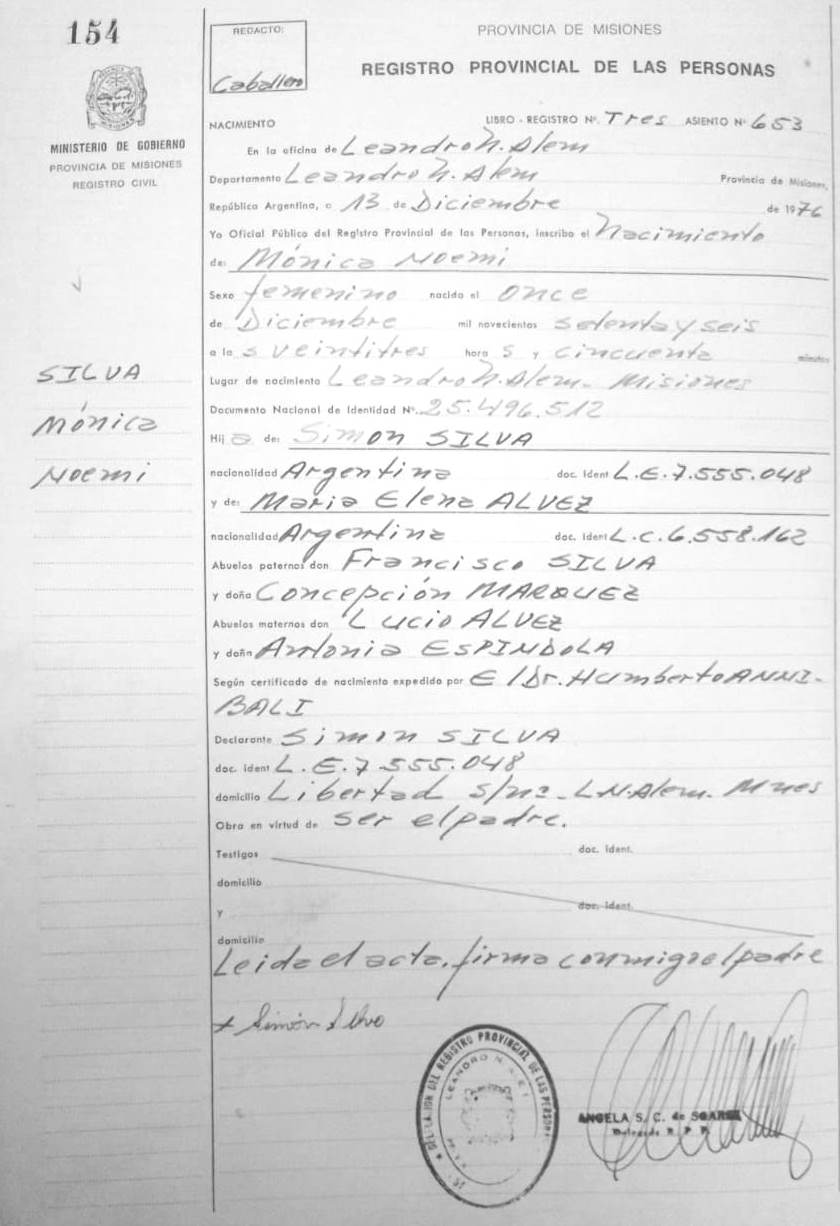 154
REDACTO:
Caballero
PROVINCIA DE MISIONES
REGISTRO PROVINCIAL DE LAS PERSONAS
MINISTERIO DE GOBIERNO
PROVINCIA DE MISIONES
REGISTRO CIVIL
NACIMIENTO LIBRO - REGISTRO Nº. Tres ASIENTO Nº 653
En la oficina de Leandro N. Alem
Departamento Leandro N. Alem Provincia de Misiones,
República Argentina, a 13 de Diciembre de 1976
Yo Oficial Público del Registro Provincial de las Personas, inscribo el Nacimiento
de: Mónica Noemi
Sexo femenino nacido el once
de Diciembre mil novecientos setenta y seis
a la s veintitres hora s y cincuenta minutos
Lugar de nacimiento Leandro N. Alem - Misiones
Documento Nacional de Identidad Nº. 25.496.512
Hij a de: Simon SILVA
SILVA
Mónica
Noemi
nacionalidad Argentina doc. Ident L.E.7.555.048
y de: Maria Elena ALVEZ
nacionalidad Argentina doc. Ident L.C.6.558.162
Abuelos paternos don Francisco SILVA
y doña Concepción MARQUEZ
Abuelos maternos don Lucio ALVEZ
y doña Antonia ESPINDOLA
Según certificado de nacimiento expedido por El Dr. Humberto ANNI-
BALI
Declarante Simon SILVA
doc. ident L.E.7.555.048
domicilio Libertad s/nº - L.N.Alem. Mnes
Obra en virtud de ser el padre.
Testigos doc. Ident.
domicilio
y doc. Ident.
domicilio
Leida el acta, firma conmigo el padre
x Simón Silva
DELEGACION DEL REGISTRO PROVINCIAL DE LAS PERSONAS
LEANDRO N. ALEM
ANGELA S. C. de
Delegada R. P. P.